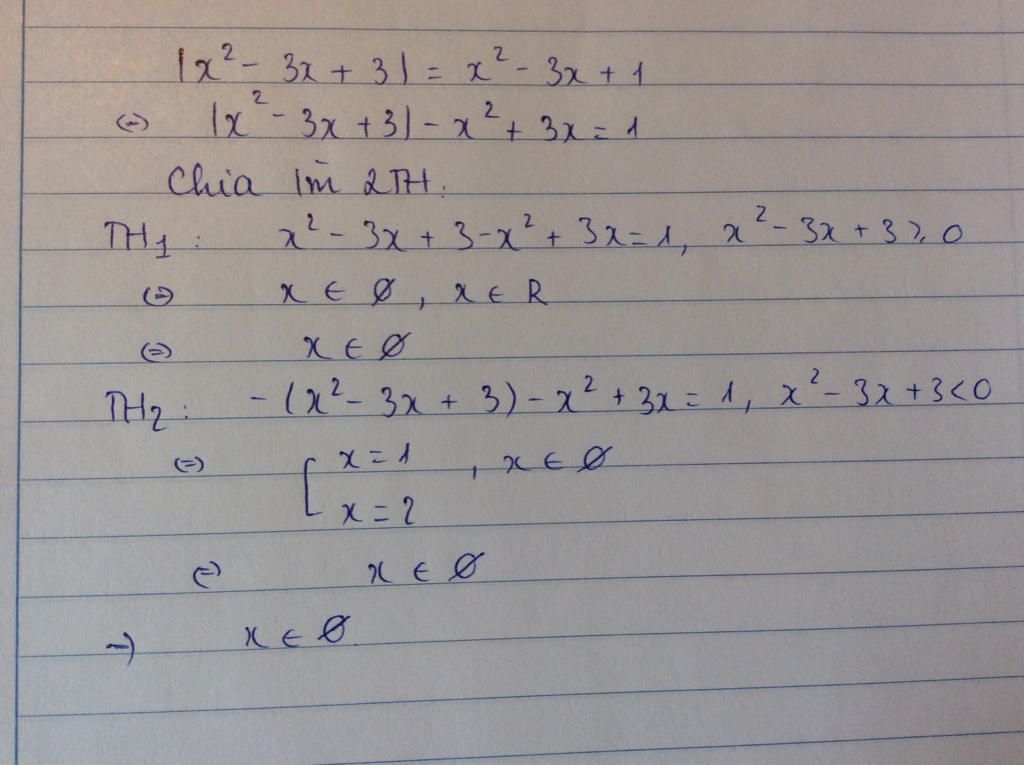 |x² - 3x + 3| = x² - 3x + 1
(=) |x² - 3x + 3| - x² + 3x = 1
Chia làm 2TH.
TH₁ : x² - 3x + 3 - x² + 3x = 1, x² - 3x + 3 ≥ 0
(=) x ∈ ∅, x ∈ R
(=) x ∈ ∅
TH₂ : - (x² - 3x + 3) - x² + 3x = 1, x² - 3x + 3 < 0
(=) [ x = 1 , x ∈ ∅
x = 2
(=) x ∈ ∅
→ x ∈ ∅.